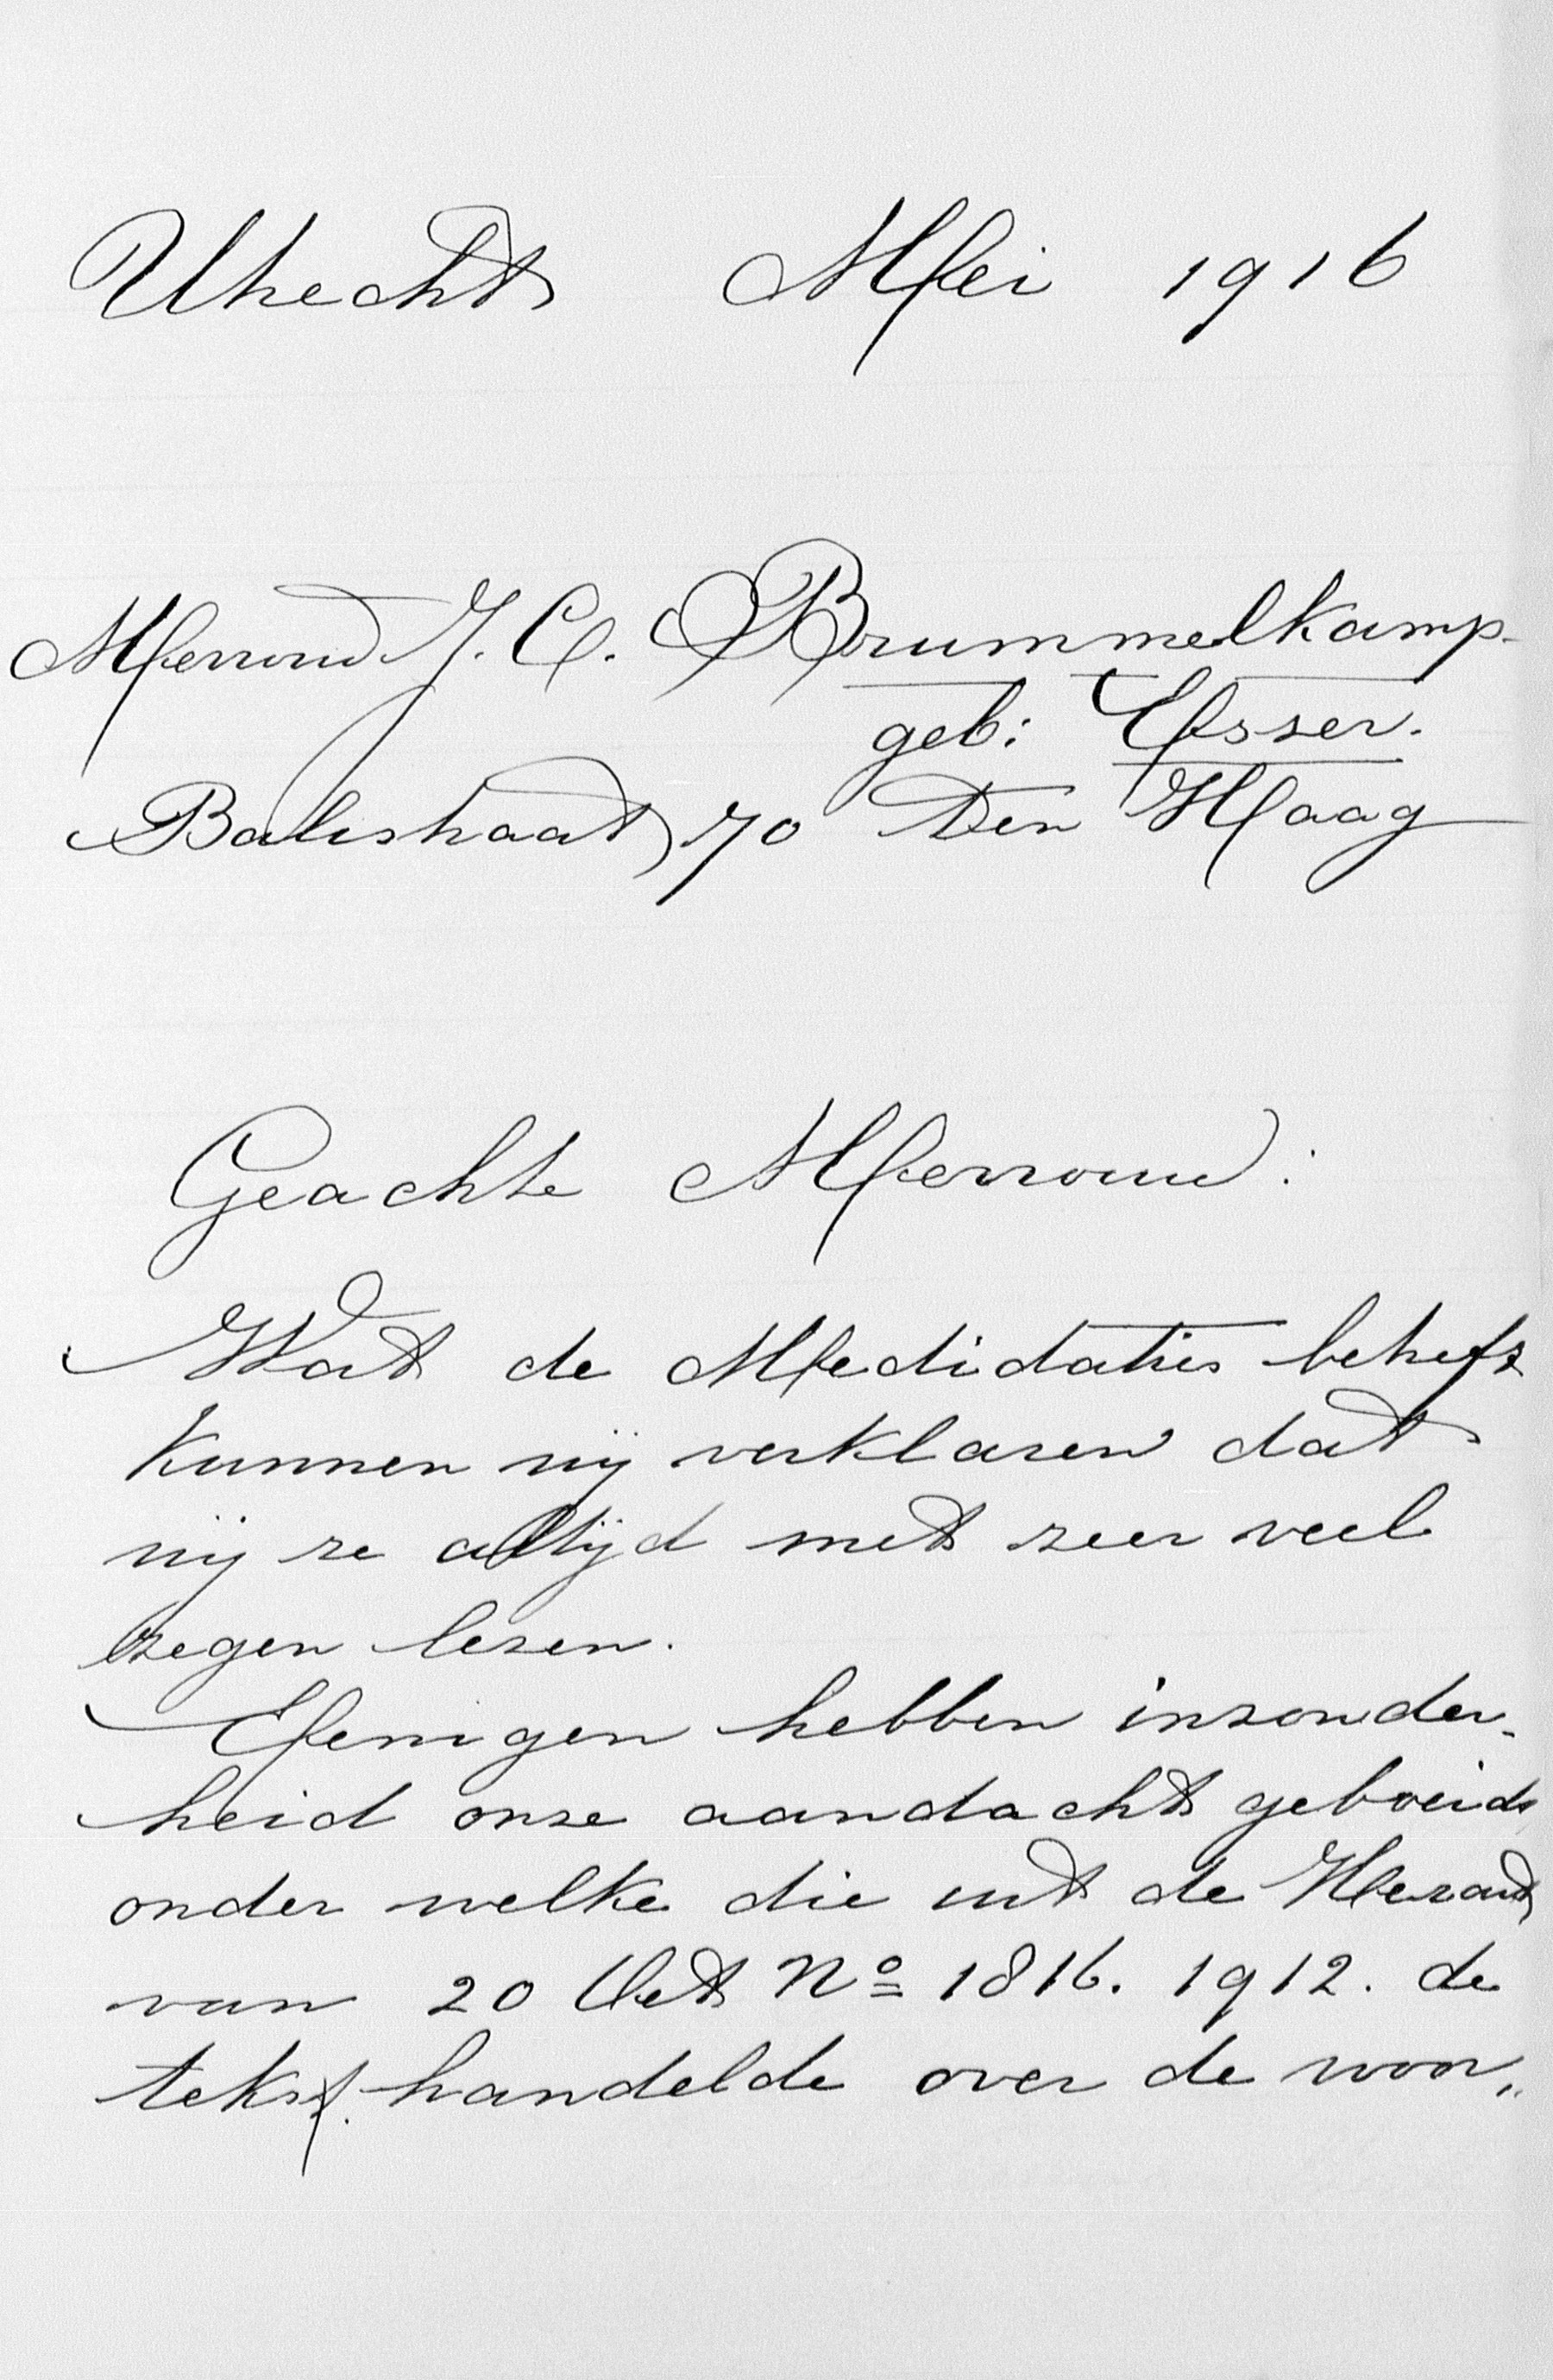 Utrecht Mei 1916
Mevrouw J. C. Brummelkamp-
geb: Esser.
Balistraat 70 Den Haag
Geachte Mevrouw:
Wat de Medidaties betreft
kunnen wij verklaren dat
wij ze altijd met zeer veel
zegen lezen.
Eenigen hebben inzonder-
heid onze aandacht geboeid,
onder welke die uit de Heraut
van 20 Oct No 1816. 1912. de
tekst. handelde over de woor„